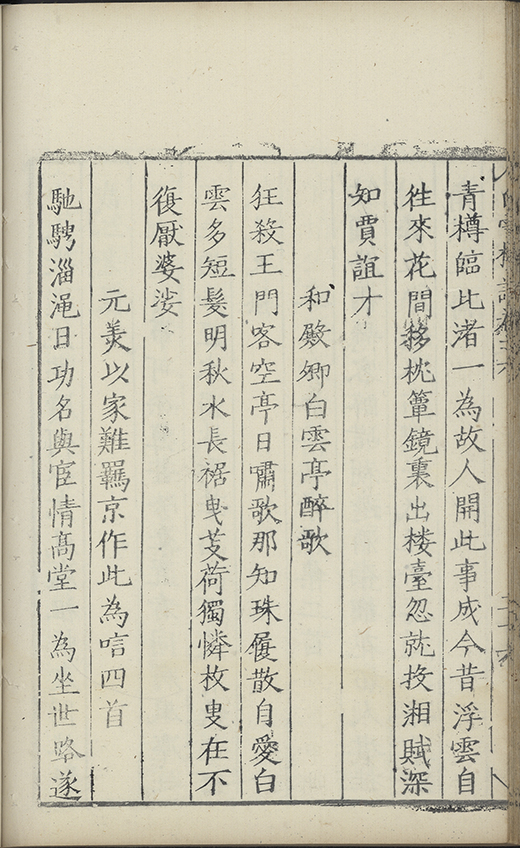 青樽臨北渚一為故人開此事成今昔浮雲自
徃來花間移枕簟鏡裏出楼臺忽就投湘賦深
知賈誼才
和殿卿白雲亭醉歌
狂殺王門客空亭日嘯歌那知珠履散自愛白
雲多短髮明秋水長裾曳芰荷獨憐枚叟在不
復厭婆娑
元美以家難羈京作此為唁四首
馳騁淄澠日功名與宦情髙堂一為坐世路遂